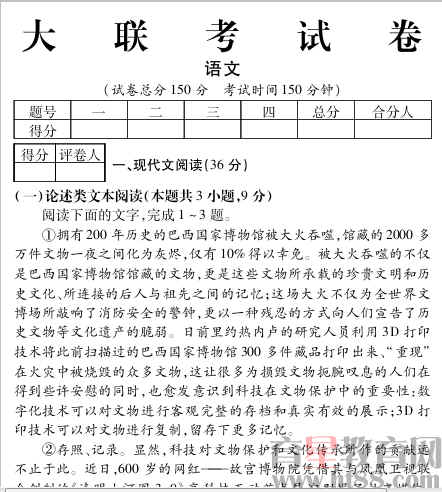 大 联 考 试 卷
语文
(试卷总分150分 考试时间150分钟)
题号 一 二 三 四 总分 合分人
得分
得分 评卷人
一、现代文阅读(36分)
(一)论述类文本阅读(本题共3小题,9分)
阅读下面的文字,完成1~3题。
①拥有200年历史的巴西国家博物馆被大火吞噬,馆藏的2000多
万件文物一夜之间化为灰烬,仅有10%得以幸免。被大火吞噬的不仅
是巴西国家博物馆馆藏的文物,更是这些文物所承载的珍贵文明和历
史文化、所连接的后人与祖先之间的记忆;这场大火不仅为全世界文
博场所敲响了消防安全的警钟,更以一种残忍的方式向人们宣告了历
史文物等文化遗产的脆弱。日前里约热内卢的研究人员利用3D打印
技术将此前扫描过的巴西国家博物馆300多件藏品打印出来、“重现”
在火灾中被烧毁的众多文物,这让很多为损毁文物扼腕叹息的人们在
得到些许安慰的同时,也愈发意识到科技在文物保护中的重要性:数
字化技术可以对文物进行客观完整的存档和真实有效的展示;3D打
印技术可以对文物进行复制,留存下更多记忆。
②存照、记录。显然,科技对文物保护和文化传承所作的贡献远
不止于此。近日,600岁的网红——故宫博物院凭借其与凤凰卫视联